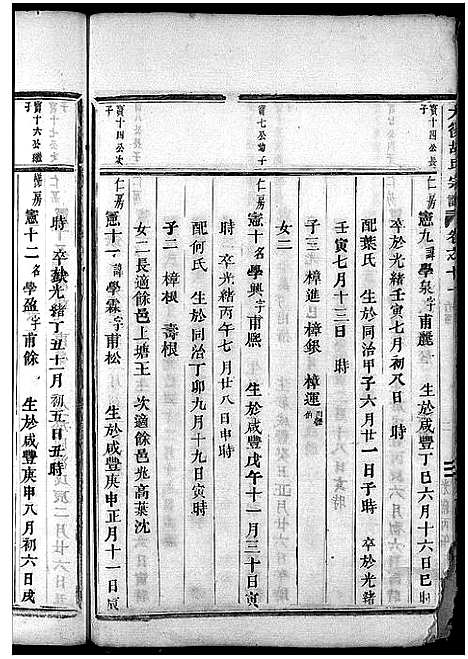 寶十四公長
子
仁房
憲九諱學泉字甫麗 生於咸豐丁巳六月十六日巳時
卒於光緒壬寅七月初八日 時
配葉氏 生於同治甲子六月廿一日子時 卒於光緒
壬寅七月十三日 時
子三 樟進 樟銀 樟運
寶七公幼子
憲十名學興字甫熈 生於咸豐戊午十一月三十日寅
時 卒光緒丙午七月廿八日申時
配何氏 生於同治丁卯九月十九日寅時
子二 樟根 壽根
女二長適餘邑上塘王 次適餘邑兆高葉沈
寶十四公次
子
仁房
憲十一諱學霖字甫松 生於咸豐庚申正月十一日寅
時 卒於光緒丁丑十一月初五日丑時
寶十六公繼
子
憲十二名學盈字甫餘 生於咸豐庚申八月初六日戌